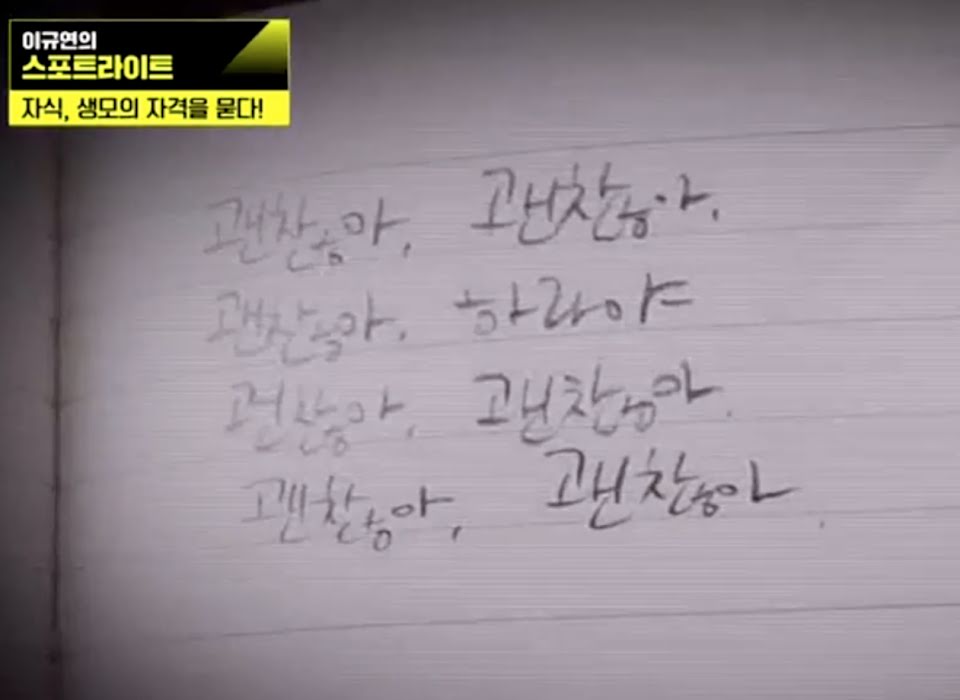 이규연의
스포트라이트
자식, 생모의 자격을 묻다!
괜찮아, 괜찮아.
괜찮아. 하라야
괜찮아, 괜찮아.
괜찮아, 괜찮아.